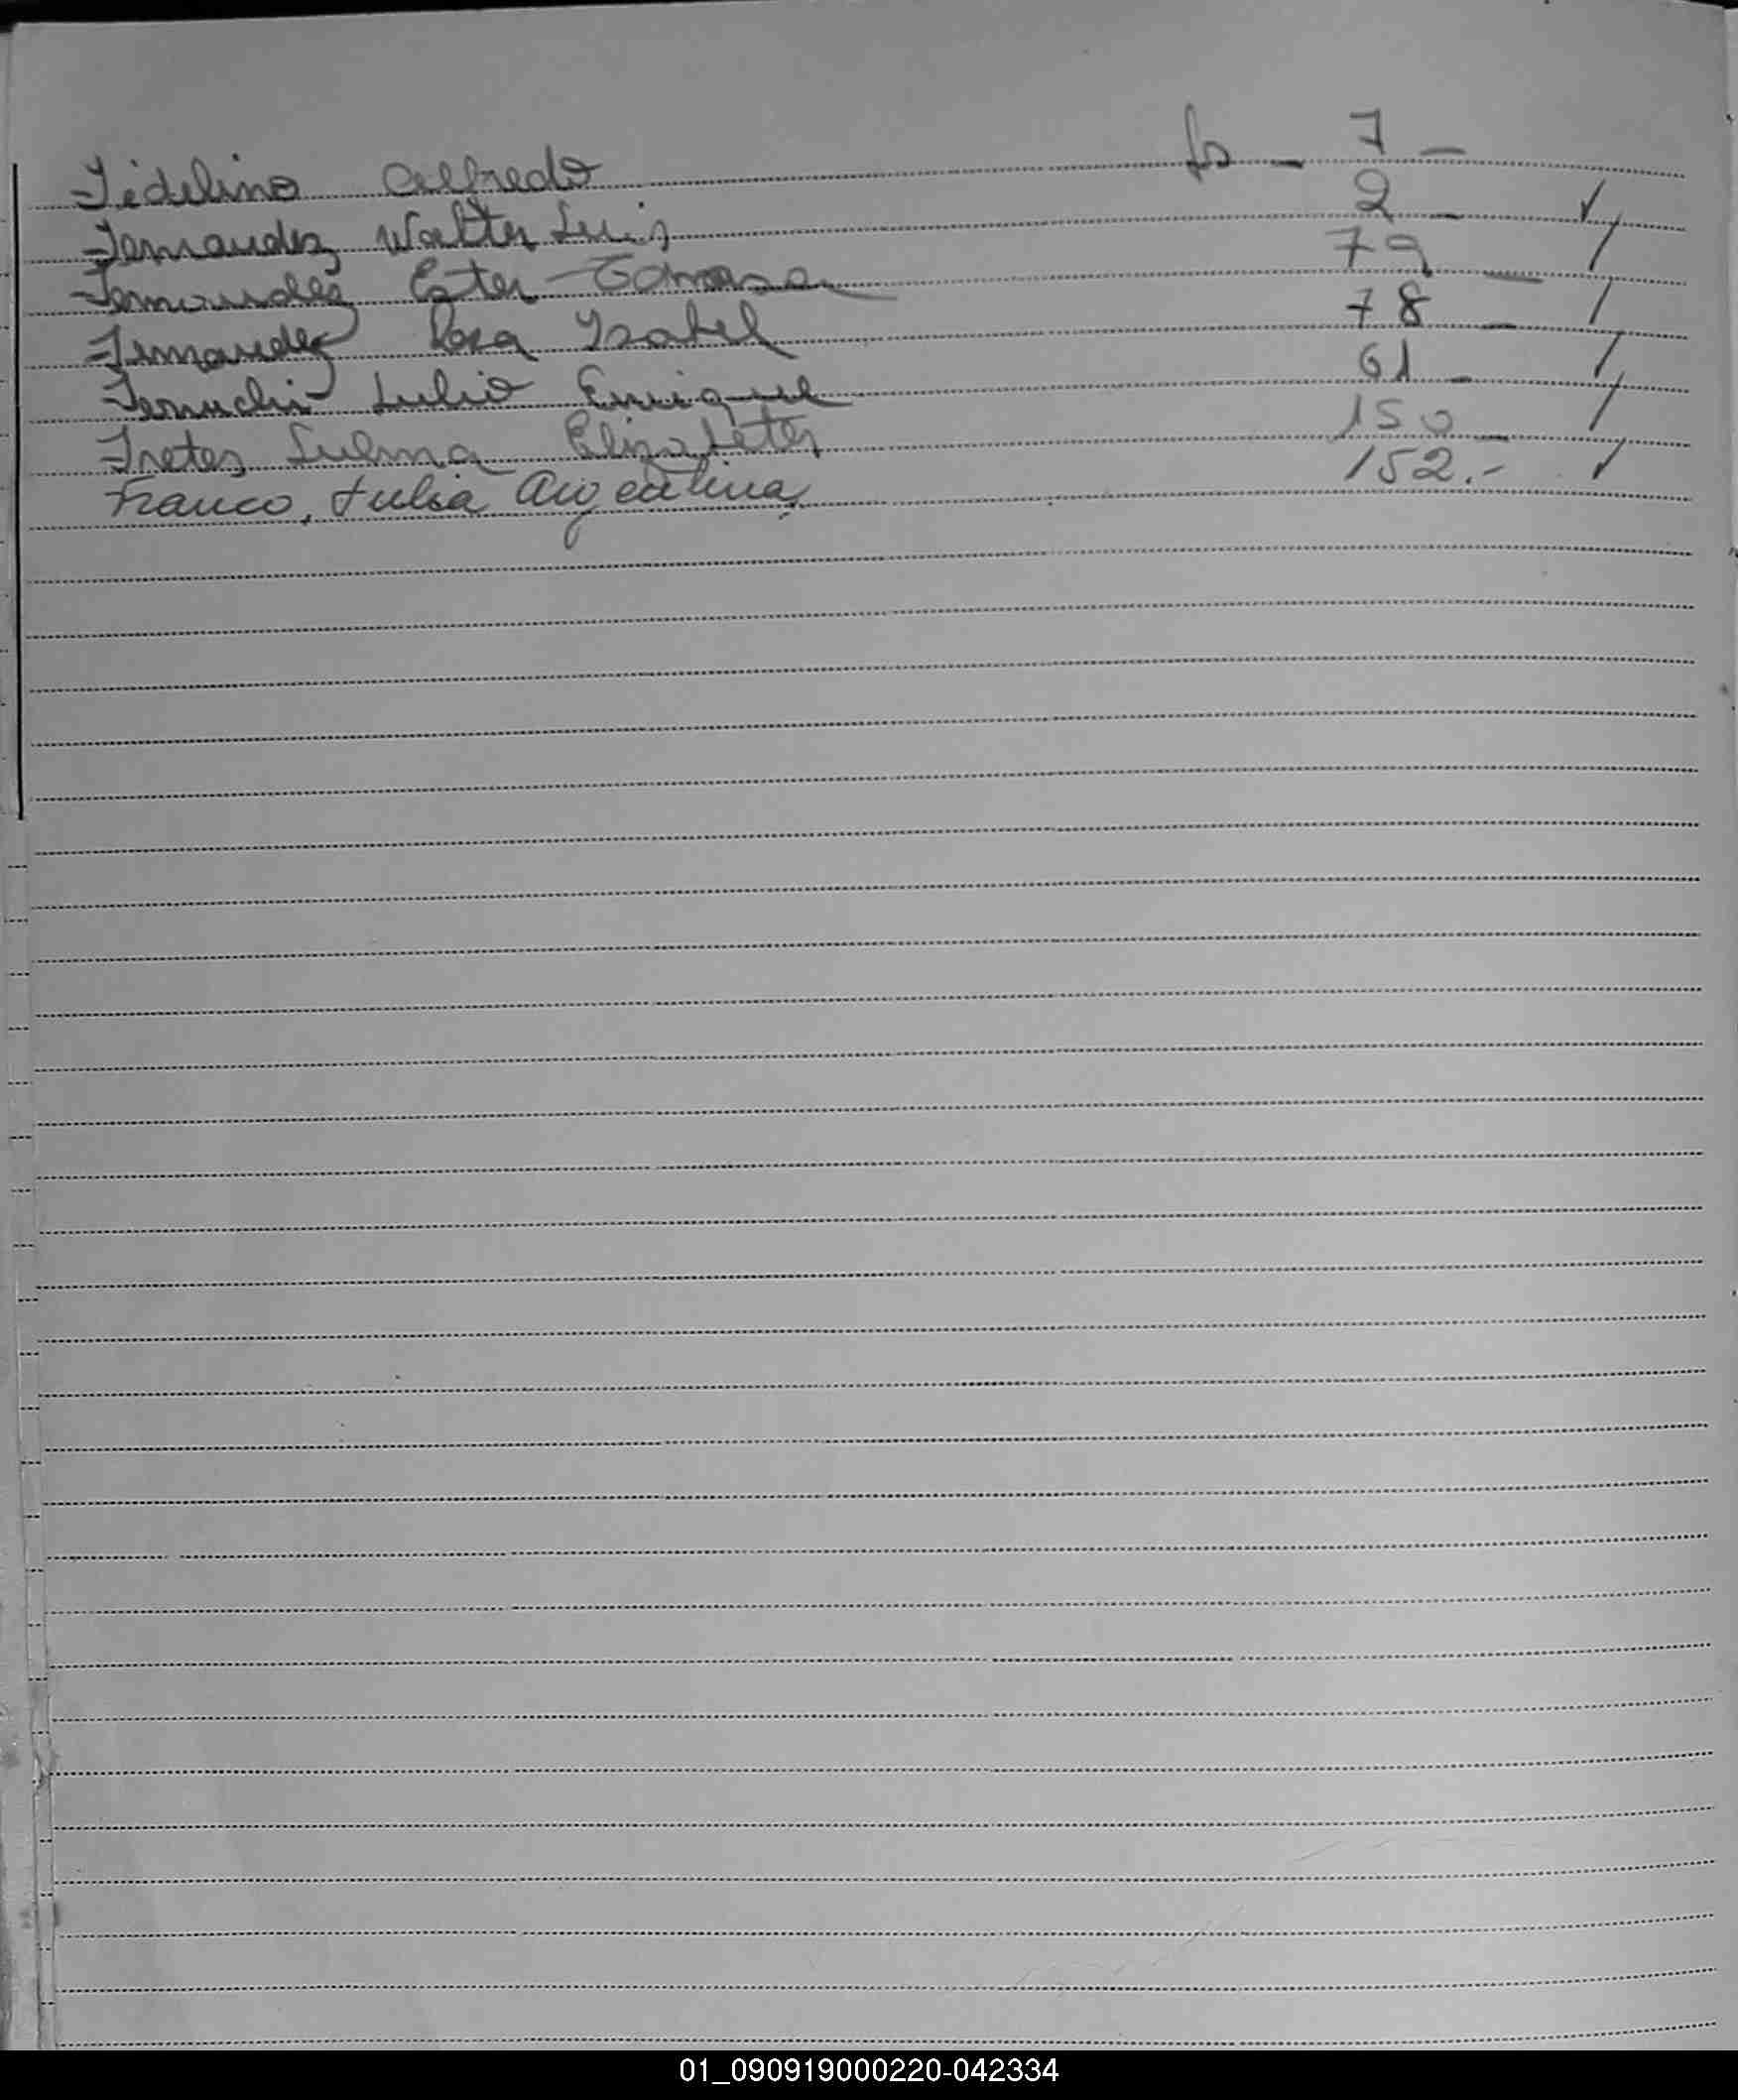 Fidelino Alfredo fs - 7 -
Fernandez Walter Luis 2 - ✓
Fernandez Ester Tomasa 79 - /
Fernandez Rosa Ysabel 78 - /
Ferruchi Julio Enrique 61 - /
Fretes Sulma Elizabeter 150 - /
Franco, Julia Argentina. 152.- ✓
01_090919000220-042334